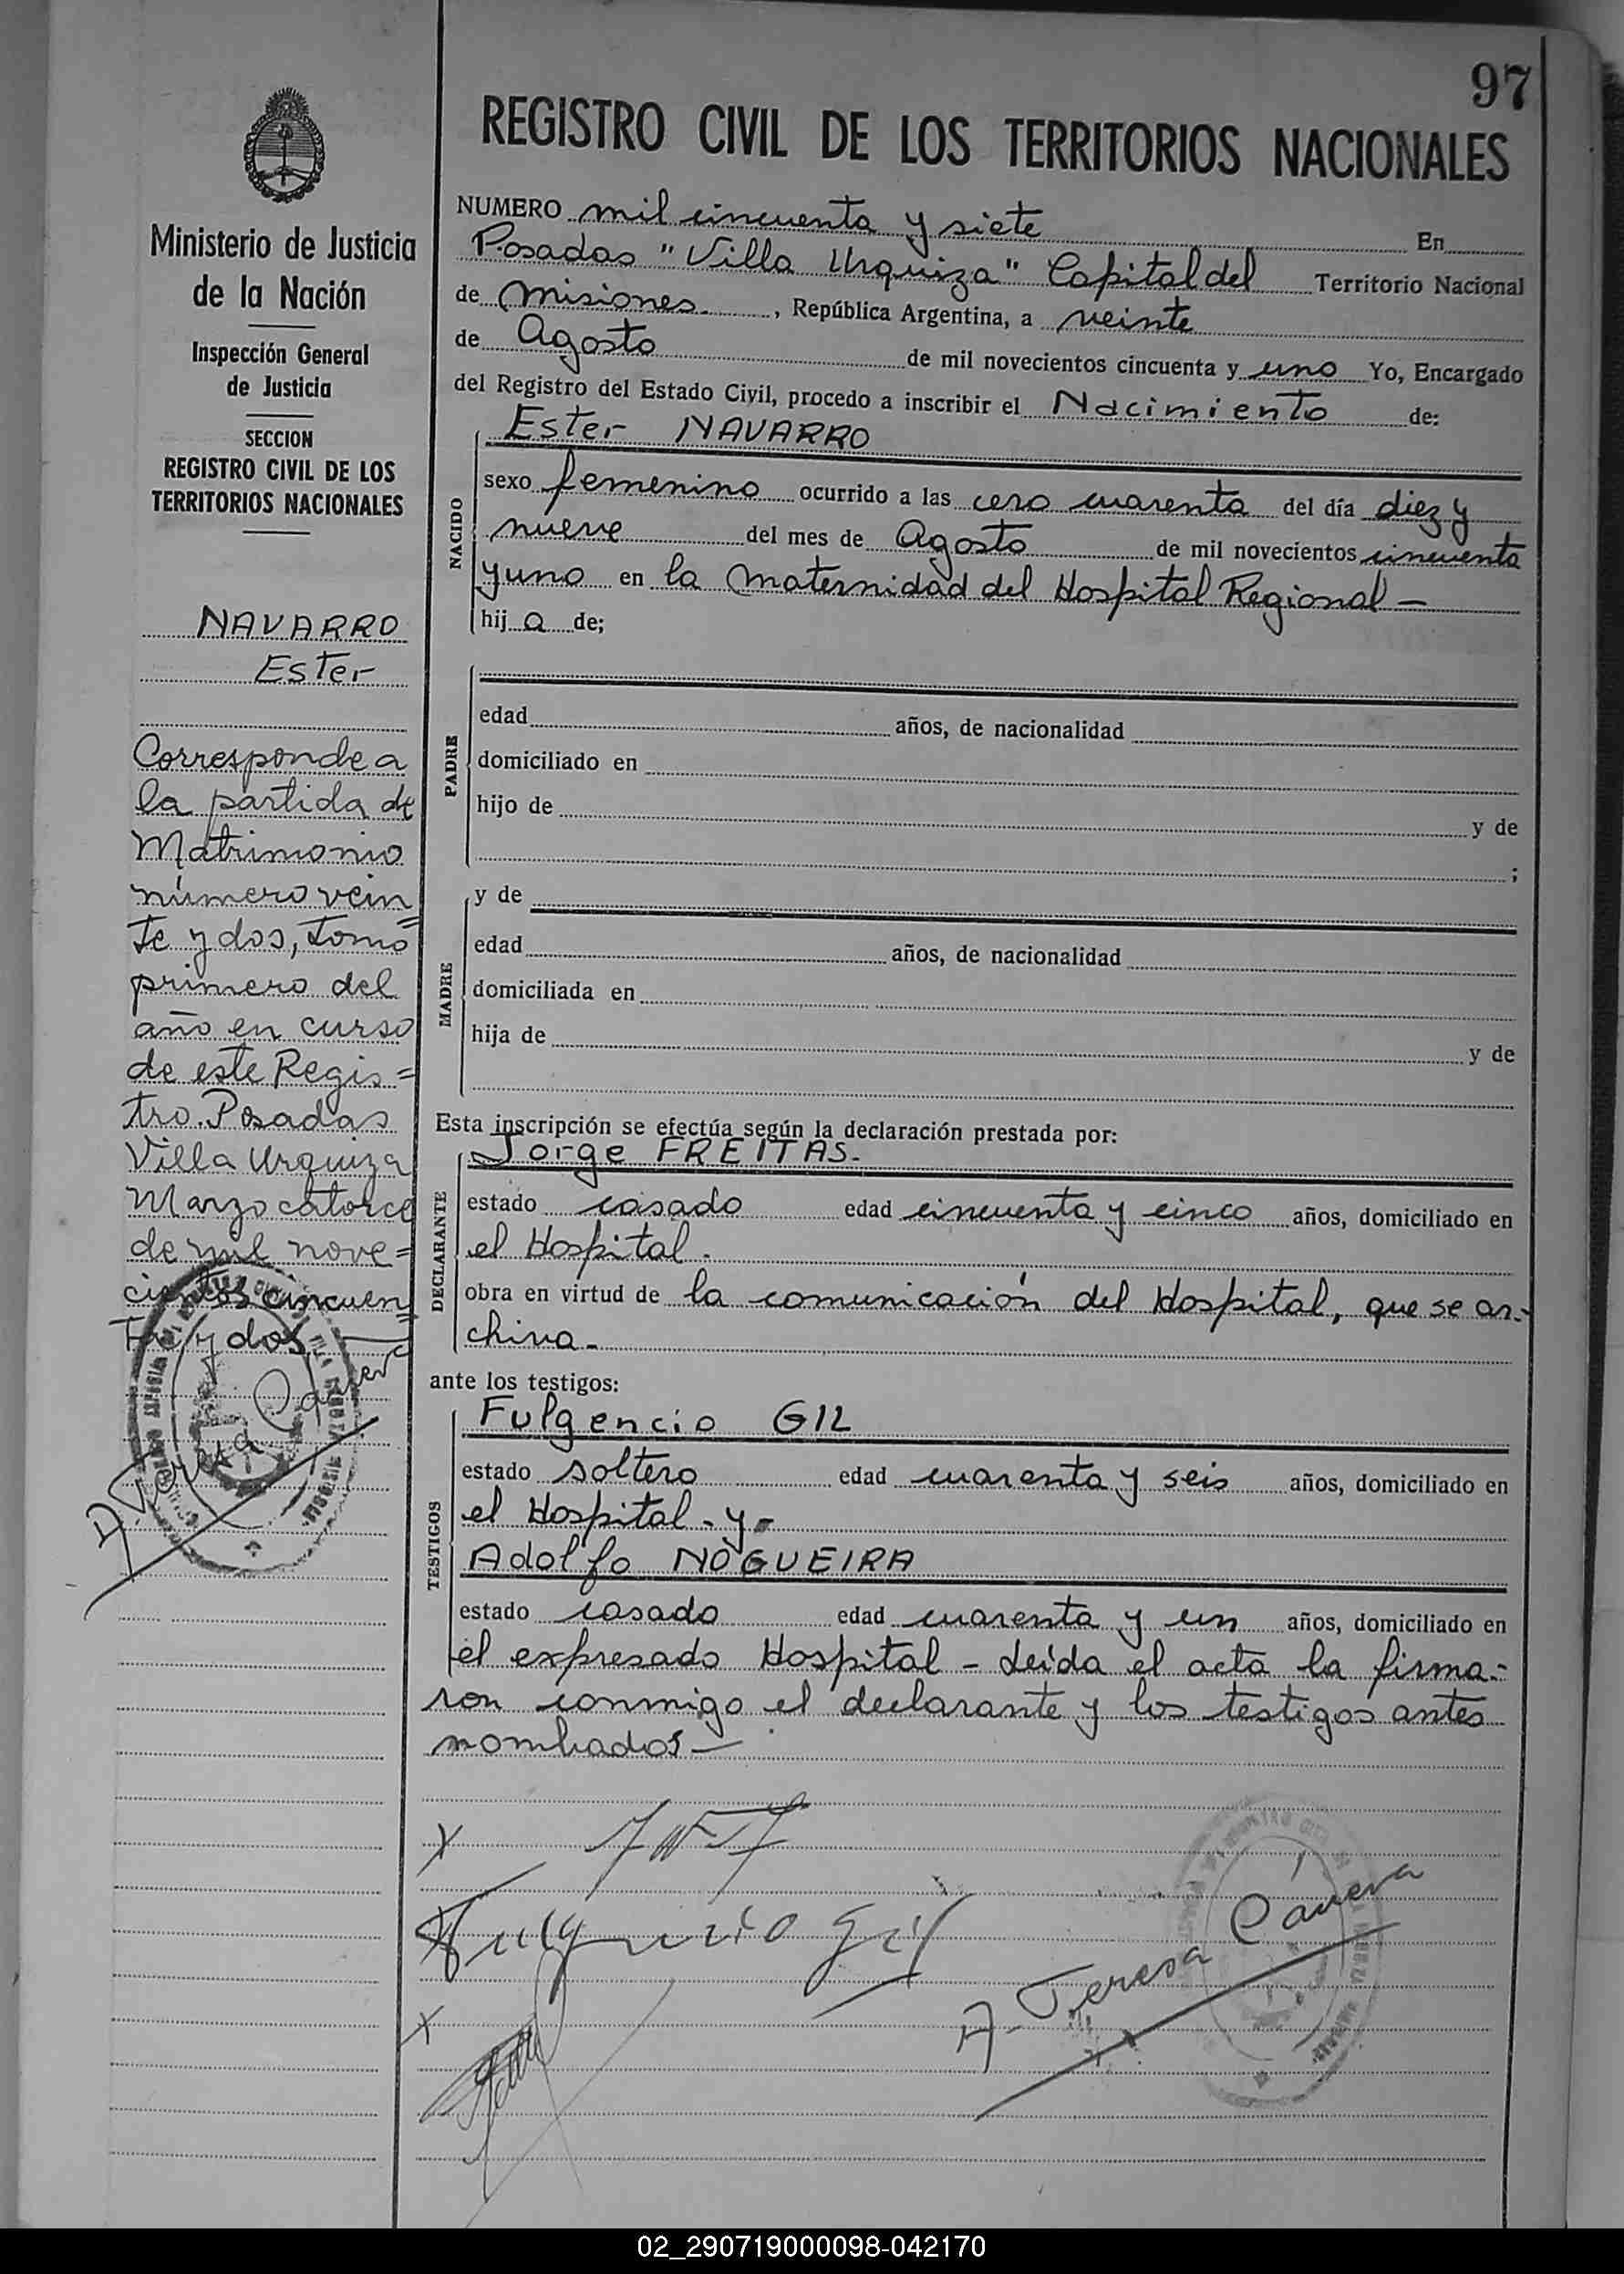 97
REGISTRO CIVIL DE LOS TERRITORIOS NACIONALES
Ministerio de Justicia
de la Nación
Inspección General
de Justicia
SECCION
REGISTRO CIVIL DE LOS
TERRITORIOS NACIONALES
NAVARRO
Ester
Corresponde a
la partida de
Matrimonio
número vein
te y dos, Tomo
primero del
año en curso
de este Regis=
tro. Posadas
Villa Urquiza
Marzo catorce
de mil nove=
cientos cincuen
ta y dos
A. Teresa Cavera
NUMERO mil cincuenta y siete En
Posadas "Villa Urquiza" Capital del Territorio Nacional
de Misiones., República Argentina, a veinte
de Agosto de mil novecientos cincuenta y uno Yo, Encargado
del Registro del Estado Civil, procedo a inscribir el Nacimiento de:
Ester NAVARRO
NACIDO
sexo femenino ocurrido a las cero cuarenta del día diez y
nueve del mes de Agosto de mil novecientos cincuenta
y uno en la Maternidad del Hospital Regional -
hij a de;
PADRE
edad años, de nacionalidad
domiciliado en
hijo de y de
;
MADRE
y de
edad años, de nacionalidad
domiciliada en
hija de y de
Esta inscripción se efectúa según la declaración prestada por:
DECLARANTE
Jorge FREITAS.
estado casado edad cincuenta y cinco años, domiciliado en
el Hospital.
obra en virtud de la comunicación del Hospital, que se ar-
chiva-
ante los testigos:
TESTIGOS
Fulgencio GIL
estado soltero edad cuarenta y seis años, domiciliado en
el Hospital - y-
Adolfo NOGUEIRA
estado casado edad cuarenta y un años, domiciliado en
el expresado Hospital - Leída el acta la firma-
ron conmigo el declarante y los testigos antes
nombrados-
x
Fulgencio Gil
x
A. Teresa Cavera
02_290719000098-042170